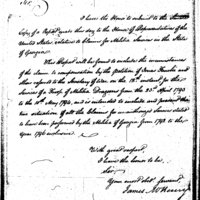 Sir,
I have the Honor to enclosed to the
Copy of a Report made this day to the House of Representatives of the
United States relative to Claims for Militia Services in the State
of Georgia.
This Report will be found to include the circumstances
of the claim to compensation by the petition of James and
others referred to the Secretary of War, on the 12th instant, for the
Services of a Troop of Militia Dragoons from the 23d April 1793
to the 10th May 1794, and is intended to exclude and prevent the
due estimation of all the Claims for an unchanged nature stated
to have been performed by the Militia of Georgia from 1792 to the
Year 1796 inclusive.
With great respect,
I have the honor to be,
Sir
Your most obed. servant
James McHenry